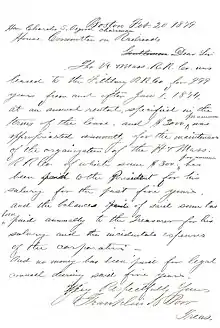 Boston Feb. 20 1879
Hon Edwards J. Chairman
House Committee on Railroads
Gentleman Dear Sir
The Vt & Mass. R.R. Co. was
leased to the Fitchburg R.R. Co. for 999
years from and after Jany 1, 1874,
at an annual rental, specified in the
terms of the lease, and $ per annum
was appropriated annually for the maintenance
of the organization of the Vt & Mass.
R.R. Co. of which sum $300 per annum has
been paid to the President for his
salary for the past five years.
and the balance of said sum has
been paid annually to the Treasurer for his
salary and the incidental expenses
of the corporation —
And no money has been paid for legal
counsel during said five years
Very Respectfully Yours
Treas.